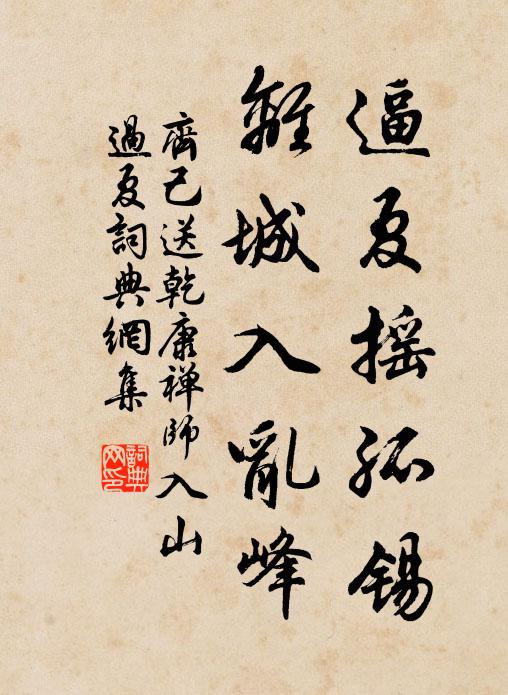 逼夏摇孤锡
離城入亂峰
齊己送乾康禅師入山
過夏詞典網集
詞典网印